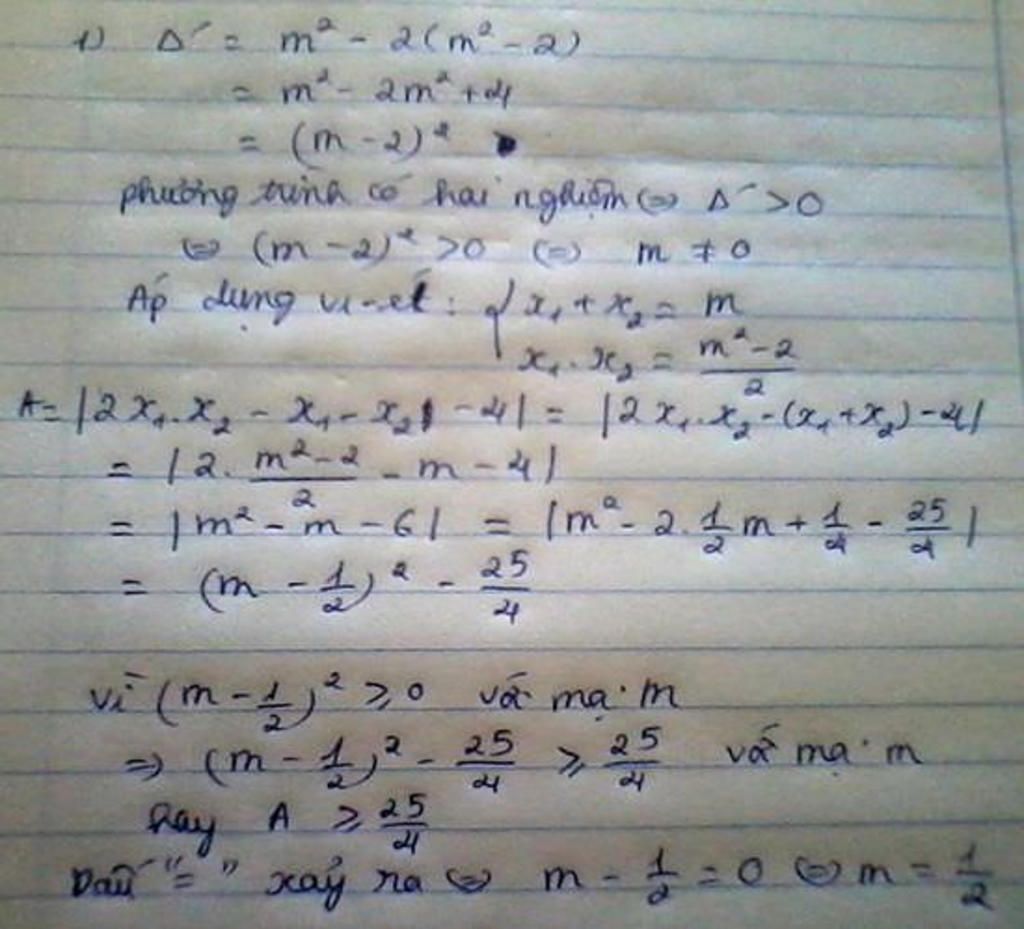 1) Δ' = m² - 2(m² - 2)
= m² - 2m² + 4
= (m - 2)²
phương trình có hai nghiệm ⇔ Δ' > 0
⇔ (m - 2)² > 0 ⇔ m ≠ 0
Áp dụng vi-ét : { x₁ + x₂ = m
x₁ . x₂ = (m² - 2)/2
A = |2x₁.x₂ - x₁ - x₂ - 4| = |2x₁.x₂ - (x₁ + x₂) - 4|
= |2. (m² - 2)/2 - m - 4|
= |m² - m - 6| = |m² - 2. 1/2 m + 1/4 - 25/4|
= (m - 1/2)² - 25/4
vì (m - 1/2)² ≥ 0 với mọi m
⇒ (m - 1/2)² - 25/4 ≥ 25/4 với mọi m
hay A ≥ 25/4
Dấu "=" xảy ra ⇔ m - 1/2 = 0 ⇔ m = 1/2